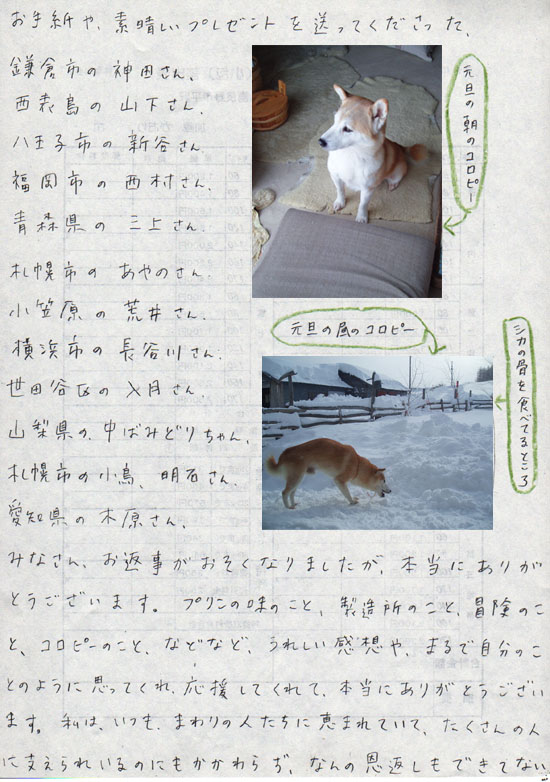 お手紙や、素晴しいプレゼントを送ってくださった、
鎌倉市の神田さん、
西表島の山下さん、
八王子市の新谷さん、
福岡市の西村さん、
青森県の三上さん、
札幌市のあやのさん、
小笠原の荒井さん、
横浜市の長谷川さん、
世田谷区の
山梨県の、中ばみどりちゃん、
札幌市の小鳥、明石さん、
愛知県の木原さん、
元旦の朝のコロピー
元旦の昼のコロピー
シカの骨を食べてるところ
みなさん、お返事がおそくなりましたが、本当にありが
とうございます。プリンの味のこと、製造所のこと、冒険のこ
と、コロピーのこと、などなど、うれしい感想や、まるで自分のこ
とのように思ってくれ、応援してくれて、本当にありがとうござい
ます。私は、いつも、まわりの人たちに恵まれていて、たくさんの人
に支えられいるのにもかかわらず、なんの恩返しもできてない